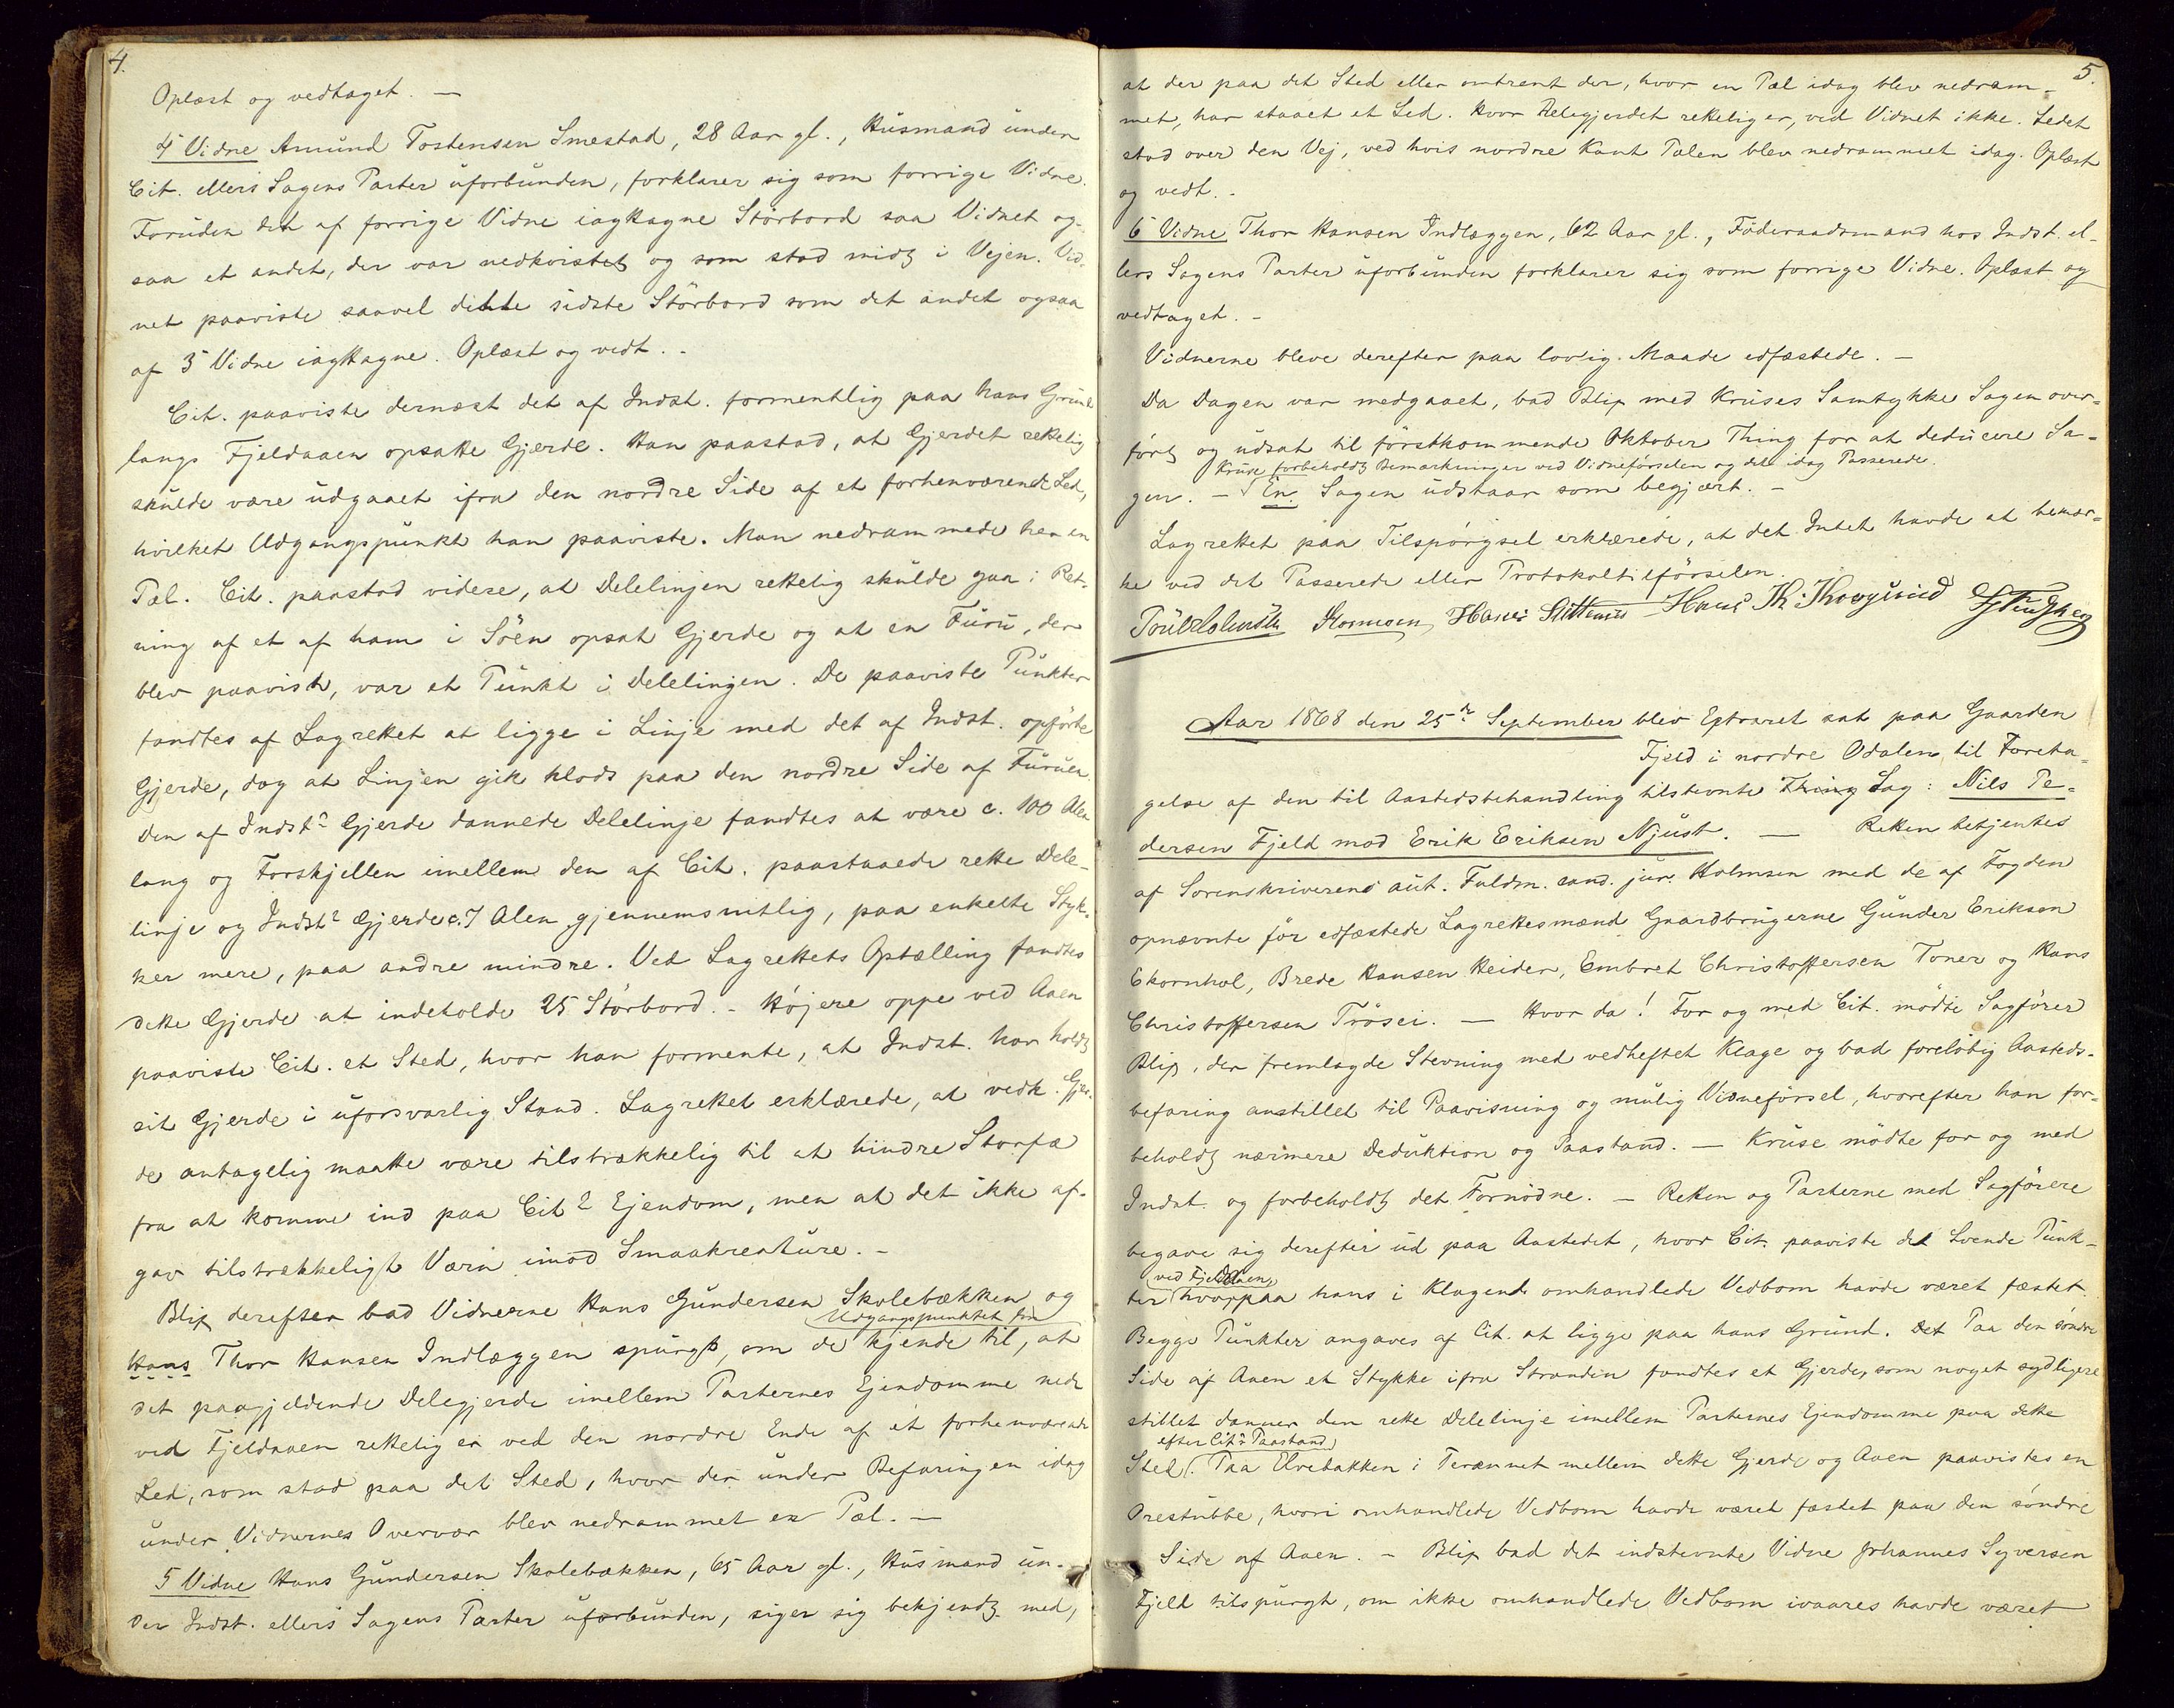 4.
Oplæst og vedtaget. —
4 Vidne Amund Tostensen Smestad, 28 Aar gl., Husmand under
Cit. ellers Sagens Parter uforbunden, forklarer sig som forrige Vidne.
Foruden det af forrige Vidne iagttagne Störbord saa Vidnet og-
saa et andet, der var nedkvistet og som stod midt i Vejen. Vid-
net paaviste saavel dette sidste Störbord som det andet ogsaa
af 3 Vidne iagttagne. Oplæst og vedt. -
Cit. paaviste dernæst det af Indst. formentlig paa hans Grund
langs Fjeldaaen opsatte Gjerde. Han paastod, at Gjerdet rettelig
skulde være udgaaet ifra den nordre Side af et forhenværende Led,
hvilket Udgangspunkt han paaviste. Man nedrammede her en
Pæl. Cit. paastod videre, at Delelinjen rettelig skulde gaa i Ret-
ning af et af ham i Söen opsat Gjerde og at en Furu, der
blev paavist, var et Punkt i Delelinjen. De paaviste Punkter
fandtes af Lagrettet at ligge i Linje med det af Indst. opförte
Gjerde, dog at Linjen gik klods paa den nordre Side af Furuen.
Den af Indsts Gjerde dannede Delelinje fandtes at være c. 100 Alen
lang og Forskjellen imellem den af Cit. paastaaede rette Dele-
linje og Indsts Gjerde c. 7 Alen gjennemsnitlig, paa enkelte Styk-
ker mere, paa andre mindre. Ved Lagrettets Optælling fandtes
dette Gjerde at indeholde 25 Störbord. - Höjere oppe ved Aaen
paaviste Cit. et Sted, hvor han formente, at Indst. har holdt
sit Gjerde i uforsvarlig Stand. Lagrettet erklærede, at vedk. Gjer-
de antagelig maatte være tilstrækkelig til at hindre Storfæ
fra at komme ind paa Cits Ejendom, men at det ikke af-
gav tilstrækkeligt Værn imod Smaakreature. -
Blix derefter bad Vidnerne Hans Gundersen Skolebækken og
Udgangspunktet for
Hans Thor Hansen Indlæggen spurgt, om de kjende til, at
det paagjeldende Delegjerde imellem Parternes Ejendomme nede
ved Fjeldaaen rettelig er ved den nordre Ende af et forhenværende
Led, som stod paa det Sted, hvor der under Befaringen idag
under Vidnernes Overvær blev nedrammet en Pæl. —
5 Vidne Hans Gundersen Skolebækken, 65 Aar gl., Husmand un-
der Indst. ellers Sagens Parter uforbunden, siger sig bekjendt med,
5.
at der paa det Sted eller omtrent der, hvor en Pæl idag blev nedram-
met, har staaet et Led. Hvor Delegjerdet rettelig er, ved Vidnet ikke. Ledet
stod over den Vej, ved hvis nordre Kant Pælen blev nedrammet idag. Oplæst
og vedt. -
6 Vidne Thor Hansen Indlæggen, 62 Aar gl., Föderaadsmand hos Indst. el-
lers Sagens Parter uforbunden forklarer sig som forrige Vidne. Oplæst og
vedtaget. -
Vidnerne bleve derefter paa lovlig Maade edfæstede. —
Da Dagen var medgaaet, bad Blix med Kruses Samtykke Sagen over-
fört og udsat til förstkommende Oktober Thing for at deducere Sa-
Kruse forbeholdt Bemærkninger ved Vidneförselen og det idag Passerede.
gen. — En. Sagen udstaar som begjært. -
Lagrettet paa Tilspörgsel erklærede, at det Intet havde at bemær-
ke ved det Passerede eller Protokoltilförselen.
Aar 1868 den 25de September blev Extraret sat paa Gaarden
Fjeld i nordre Odalen til Foreta-
gelse af den til Aastedsbehandling tilstevnte Thing Sag: Nils Pe-
dersen Fjeld mod Erik Eriksen Njust. — Retten betjentes
af Sorenskriverens aut. Fuldm. cand. jur. Holmsen med de af Fogden
opnævnte för edfæstede Lagrettesmænd Gaardbrugerne Gunder Eriksen
Ekornhol, Brede Hansen Heider, Embret Christoffersen Toner og Hans
Christoffersen Trösei. — Hvor da! For og med Cit. mödte Sagförer
Blix, der fremlagde Stevning med vedheftet Klage og bad forelöbig Aasteds-
befaring anstillet til Paavisning og mulig Vidneförsel, hvorefter han for-
beholdt nærmere Deduktion og Paastand. — Kruse mödte for og med
Indst. og forbeholdt det Fornödne. — Retten og Parterne med Sagförere
begave sig derefter ud paa Aastedet, hvor Cit. paaviste de tvende Punk-
ved Fjeldaaen,
ter hvorpaa hans i Klagen omhandlede Vedbom havde været fæstet.
Begge Punkter angaves af Cit. at ligge paa hans Grund. Det Paa den söndre
Side af Aaen et Stykke ifra Stranden fandtes et Gjerde, som noget sydligere
stillet danner den rette Delelinje imellem Parternes Ejendomme paa dette
efter Cits Paastand
Sted. Paa Elvebakken i Terænnet mellem dette Gjerde og Aaen paavistes en
Orestubbe, hvori omhandlede Vedbom havde været fæstet paa den söndre
Side af Aaen. - Blix bad det indstevnte Vidne Johannes Syversen
Fjeld tilspurgt, om ikke omhandlede Vedbom ivaares havde været